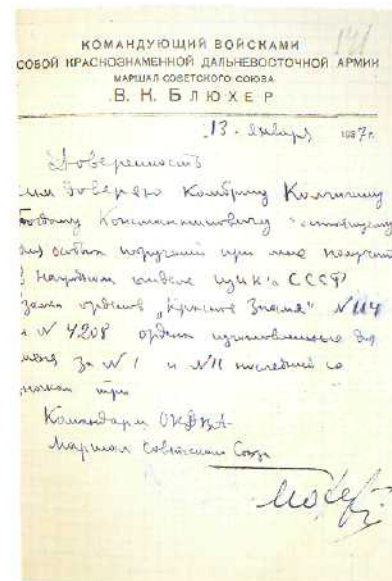 141
КОМАНДУЮЩИЙ ВОЙСКАМИ
СОБОЙ КРАСНОЗНАМЕННОЙ ДАЛЬНЕВОСТОЧНОЙ АРМИИ
МАРШАЛ СОВЕТСКОГО СОЮЗА
В. К. БЛЮХЕР
13. января 1937г.
Доверенность
доверяю Комбригу
Константиновичу
особых поручений при мне получить
в наградном отделе ЦИК'а СССР
орденов „Красное Знамя" N 114
и N 4208 ордена изготовленные для
меня за N 1 и N 11 последний со
три
Командарм ОКДВА
Маршал Советского Союза